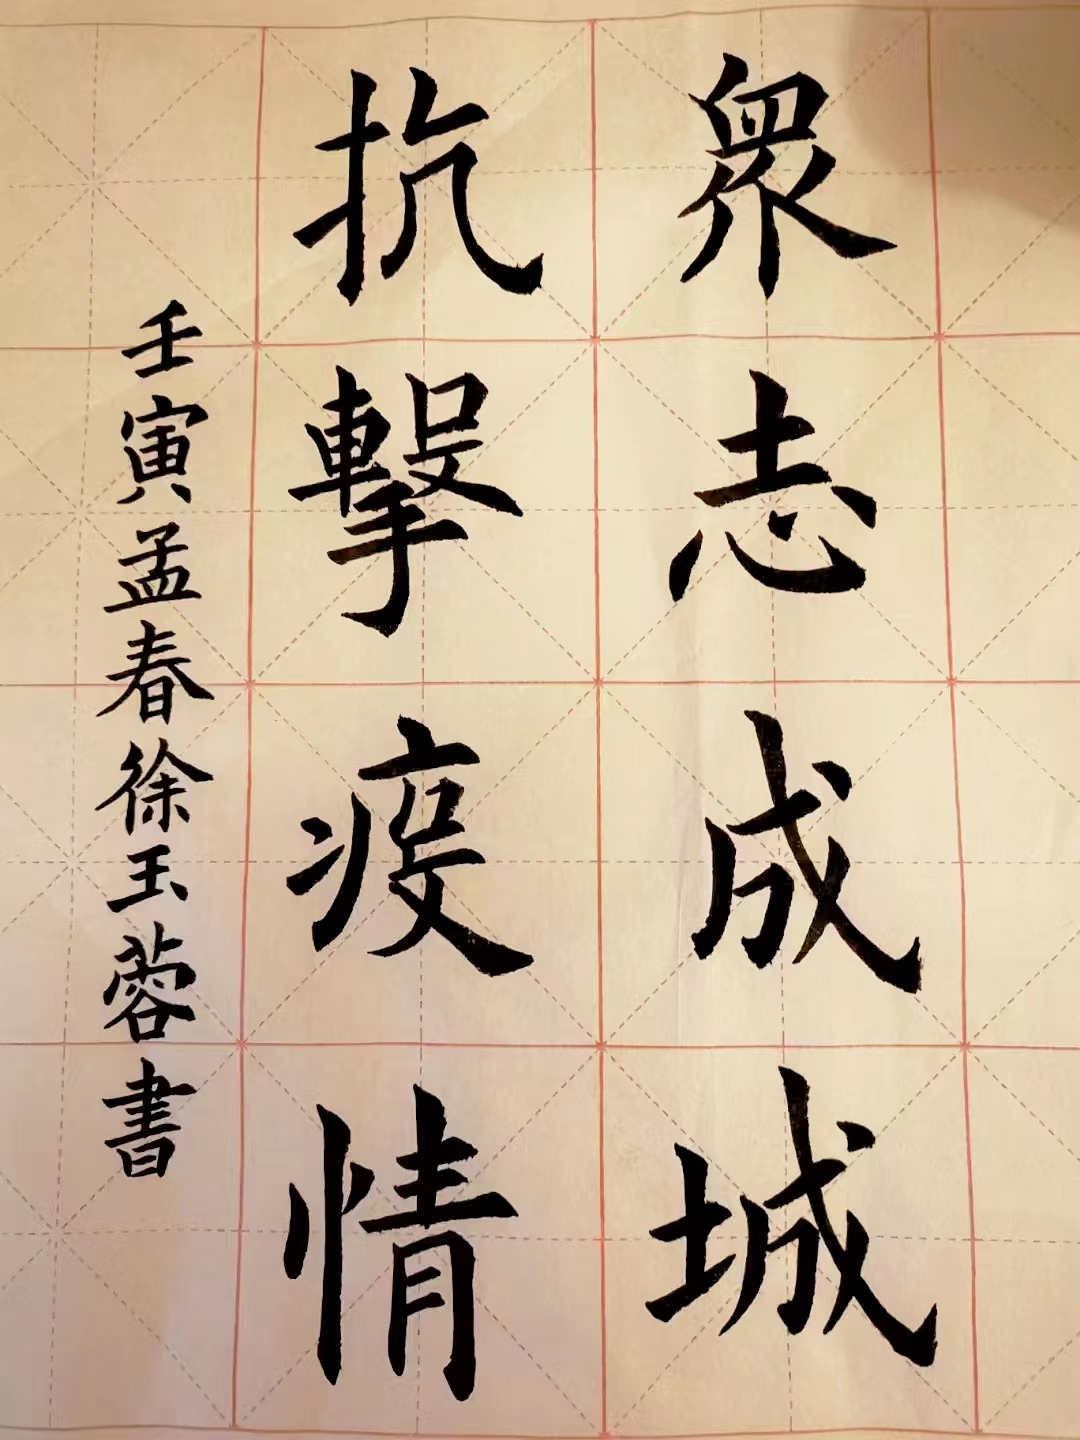 眾志成城
抗擊疫情
壬寅孟春徐玉蓉書